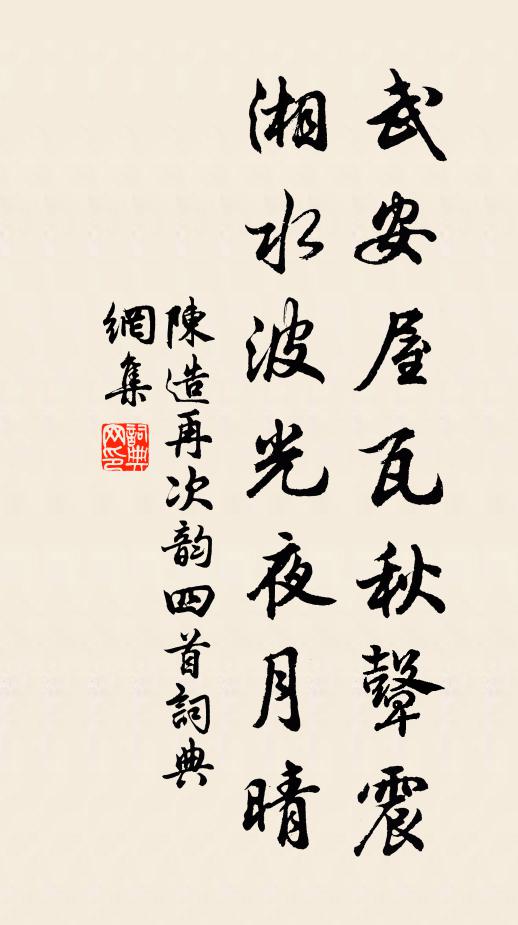 武安屋瓦秋鼙震
湘水波光夜月晴
陳造再次韵四首詞典
網集
詞典
网印